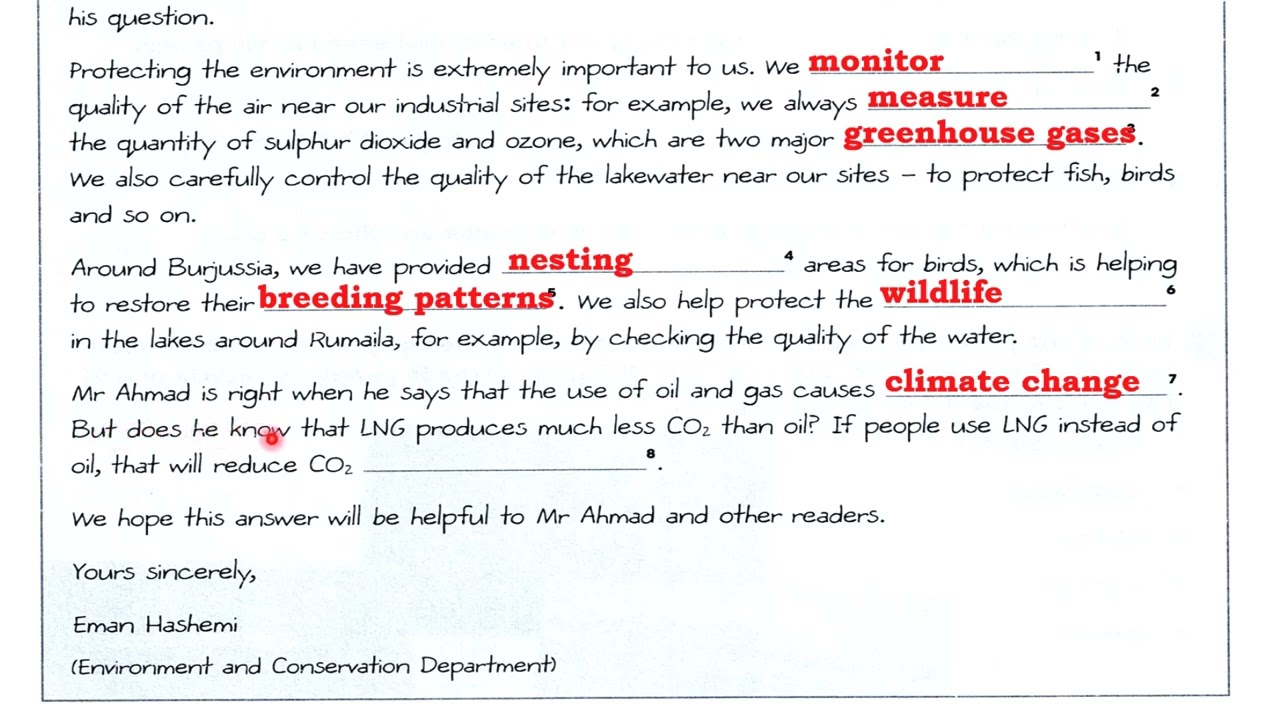 his question.
Protecting the environment is extremely important to us. We monitor 1 the
quality of the air near our industrial sites: for example, we always measure 2
the quantity of sulphur dioxide and ozone, which are two major greenhouse gases 3.
We also carefully control the quality of the lakewater near our sites – to protect fish, birds
and so on.
Around Burjussia, we have provided nesting 4 areas for birds, which is helping
to restore their breeding patterns 5. We also help protect the wildlife 6
in the lakes around Rumaila, for example, by checking the quality of the water.
Mr Ahmad is right when he says that the use of oil and gas causes climate change 7.
But does he know that LNG produces much less CO2 than oil? If people use LNG instead of
oil, that will reduce CO2 8.
We hope this answer will be helpful to Mr Ahmad and other readers.
Yours sincerely,
Eman Hashemi
(Environment and Conservation Department)